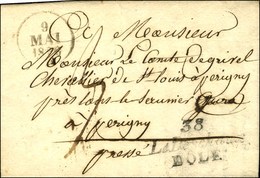 9
MAI
A Monsieur
Monsieur Le Comte de grivel
Chevalier de St Louis a perigny
pres lons le saunier Jura
a perigny
pressé
38
DOLE